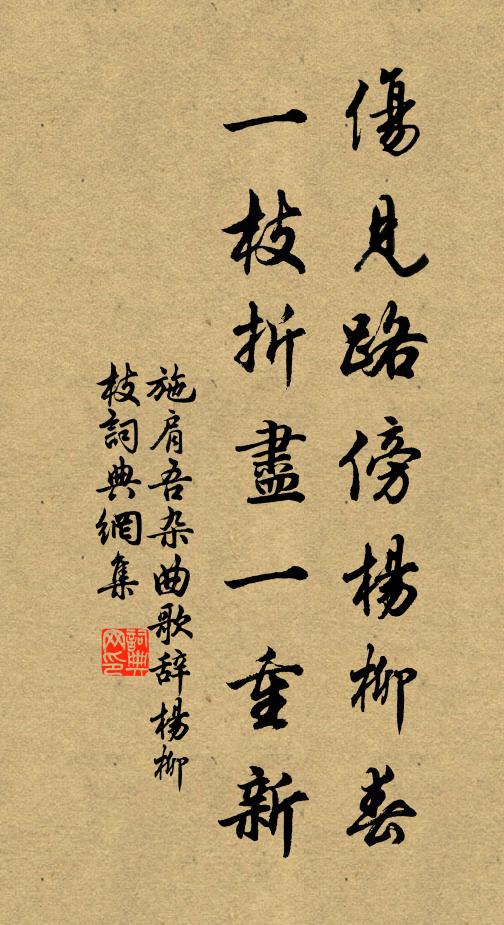 傷見路傍楊柳春
一枝折盡一重新
施肩吾杂曲歌辞楊柳
枝詞典網集
詞典
网印